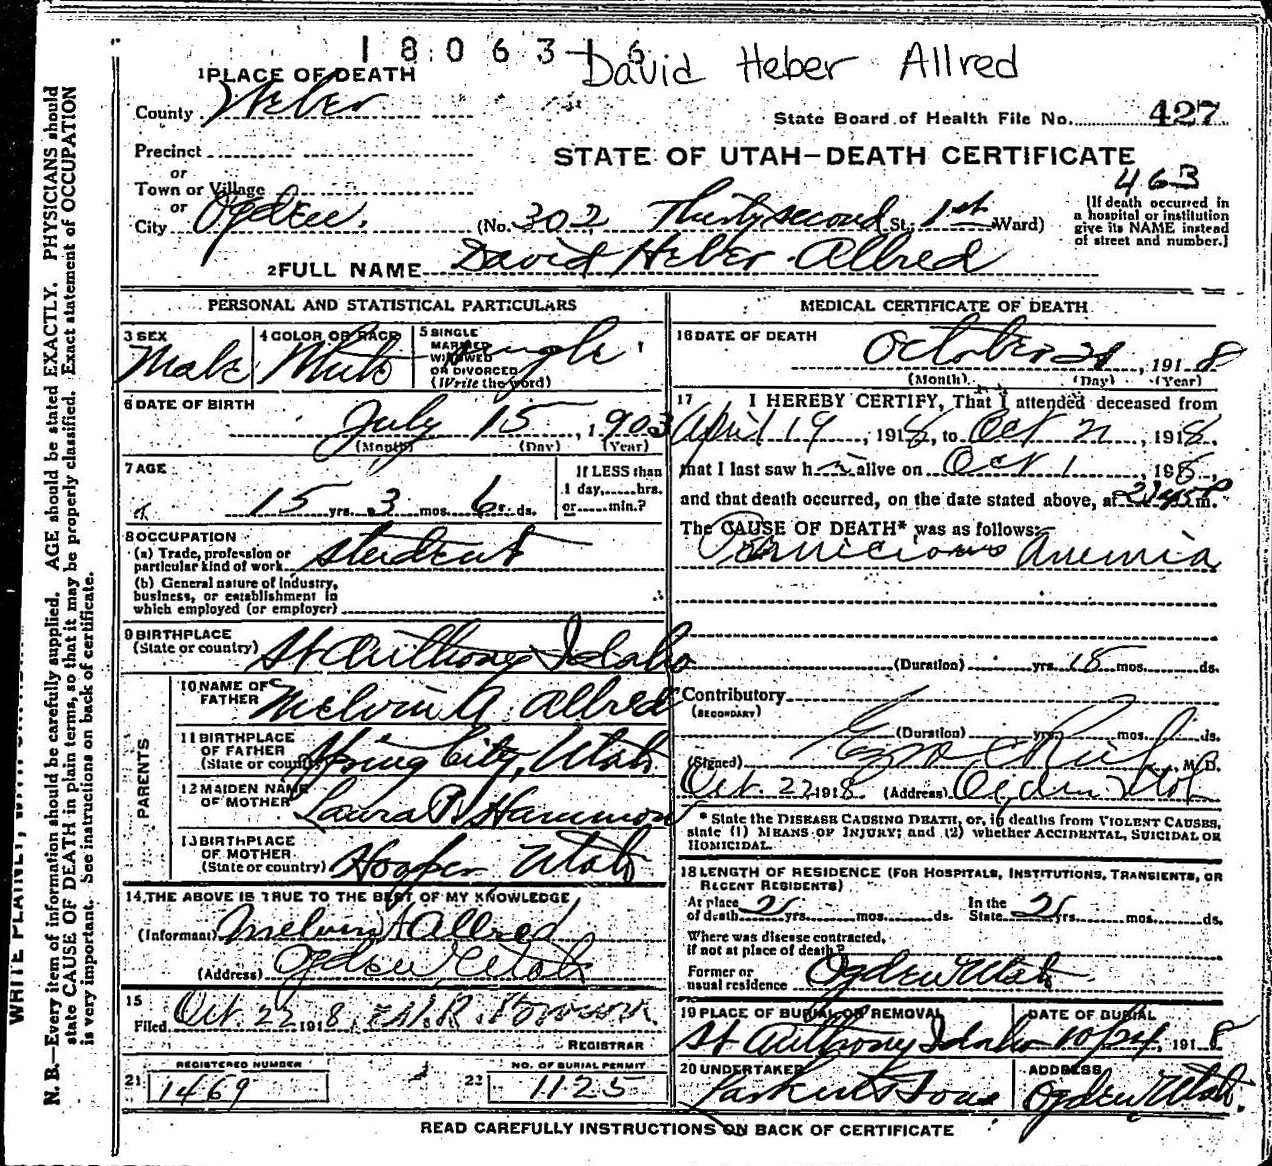 1806316
David Heber Allred
1 PLACE OF DEATH
County Weber
State Board of Health File No. 427
Precinct
or
STATE OF UTAH—DEATH CERTIFICATE
Town or Village
463
or
City Ogden. (No. 302 Thirty second St. 1st Ward)
[If death occurred in
a hospital or institution
give its NAME instead
of street and number.]
2 FULL NAME David Heber Allred
PERSONAL AND STATISTICAL PARTICULARS
3 SEX Male
4 COLOR OR RACE White
5 SINGLE
MARRIED
WIDOWED
OR DIVORCED
(Write the word) Single
6 DATE OF BIRTH
July 15, 1903
(Month) (Day) (Year)
7 AGE
15 yrs. 3 mos. 6 ds.
If LESS than
1 day,......hrs.
or......min.?
8 OCCUPATION
(a) Trade, profession or
particular kind of work student
(b) General nature of Industry,
business, or establishment in
which employed (or employer)
9 BIRTHPLACE
(State or country) St Anthony Idaho
PARENTS
10 NAME OF
FATHER Melvin A. Allred
11 BIRTHPLACE
OF FATHER
(State or country) Spring City, Utah
12 MAIDEN NAME
OF MOTHER Laura P. Hammon
13 BIRTHPLACE
OF MOTHER
(State or country) Hooper Utah
14 THE ABOVE IS TRUE TO THE BEST OF MY KNOWLEDGE
(Informant) Melvin A Allred
(Address) Ogden Utah
15
Filed Oct. 22 1918,
REGISTRAR
REGISTERED NUMBER
21 1469
NO. OF BURIAL PERMIT
22 1125
MEDICAL CERTIFICATE OF DEATH
16 DATE OF DEATH
October 21, 1918
(Month) (Day) (Year)
17 I HEREBY CERTIFY, That I attended deceased from
April 19, 1918, to Oct 21, 1918.
that I last saw h alive on Oct 1, 1918,
and that death occurred, on the date stated above, at m.
The CAUSE OF DEATH* was as follows:
Pernicious Anemia
(Duration) yrs. 18 mos. ds.
Contributory
(SECONDARY)
(Duration) yrs. mos. ds.
(Signed) Ezra C Rich, M.D.
Oct. 22 1918 (Address) Ogden Utah
* State the DISEASE CAUSING DEATH, or, if deaths from VIOLENT CAUSES,
state (1) MEANS OF INJURY; and (2) whether ACCIDENTAL, SUICIDAL OR
HOMICIDAL.
18 LENGTH OF RESIDENCE (FOR HOSPITALS, INSTITUTIONS, TRANSIENTS, OR
RECENT RESIDENTS)
At place
of death yrs. mos. ds.
In the
State yrs. mos. ds.
Where was disease contracted,
if not at place of death?
Former or
usual residence Ogden Utah
19 PLACE OF BURIAL OR REMOVAL
St Anthony Idaho
DATE OF BURIAL
10/24, 1918
20 UNDERTAKER
Larkin & Sons
ADDRESS
Ogden Utah.
READ CAREFULLY INSTRUCTIONS ON BACK OF CERTIFICATE
N. B.—Every item of information should be carefully supplied. AGE should be stated EXACTLY. PHYSICIANS should
state CAUSE OF DEATH in plain terms, so that it may be properly classified. Exact statement of OCCUPATION
is very important. See instructions on back of certificate.